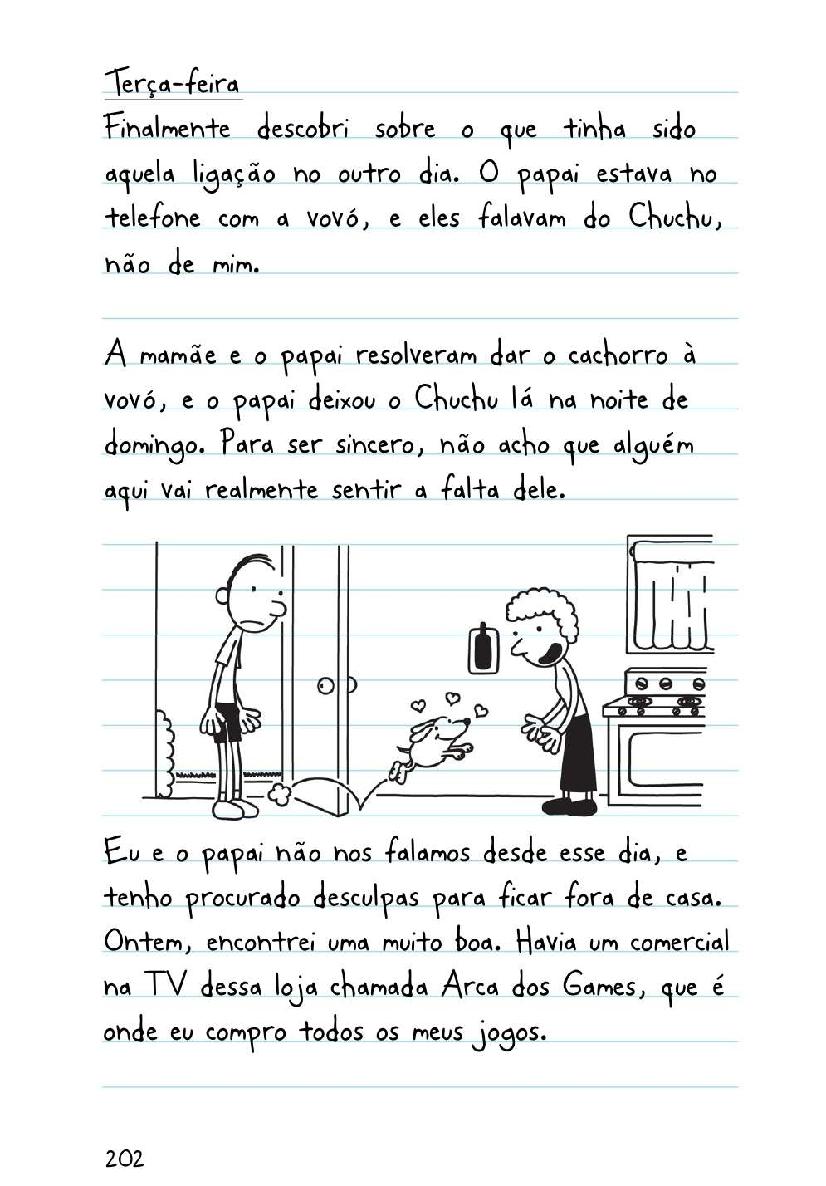 Terça-feira
Finalmente descobri sobre o que tinha sido
aquela ligação no outro dia. O papai estava no
telefone com a vovó, e eles falavam do Chuchu,
não de mim.
A mamãe e o papai resolveram dar o cachorro à
vovó, e o papai deixou o Chuchu lá na noite de
domingo. Para ser sincero, não acho que alguém
aqui vai realmente sentir a falta dele.
Eu e o papai não nos falamos desde esse dia, e
tenho procurado desculpas para ficar fora de casa.
Ontem, encontrei uma muito boa. Havia um comercial
na TV dessa loja chamada Arca dos Games, que é
onde eu compro todos os meus jogos.
202